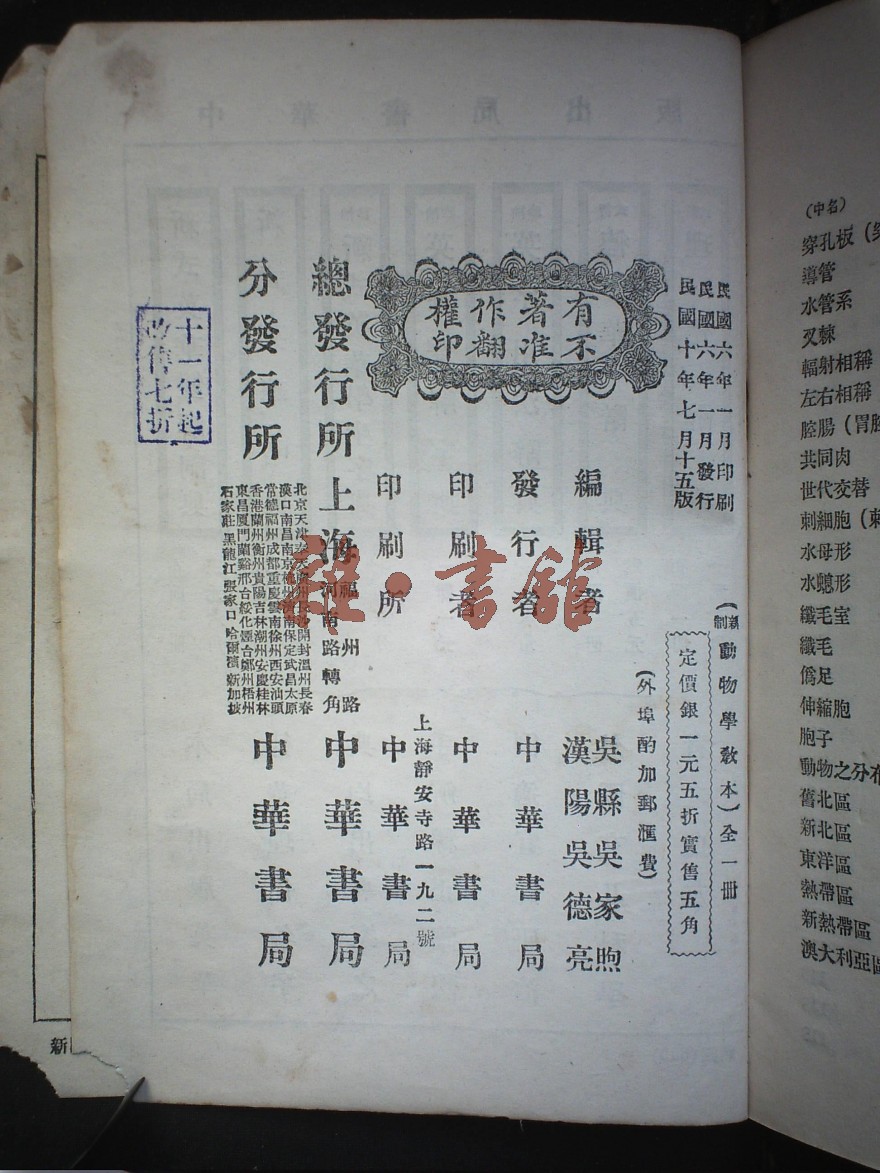 民國六年一月印刷
民國六年一月發行
民國十年七月十五版
(新制動物學教本)全一冊
定價銀一元五折實售五角
(外埠酌加郵匯費)
有著作權
不准翻印
編輯者
吳縣吳家煦
漢陽吳德亮
發行者 中華書局
印刷者 中華書局
印刷所
上海靜安寺路一九二號
中華書局
總發行所
上海
福州路
河南路轉角
中華書局
分發行所
漢口南昌南京杭州濟南保定武昌太原
常德福州成都重慶雲南徐州西安汕頭
香港蘭州衡州貴陽吉林潮州安慶桂林
東昌厦門蘭谿邢台綏化煙台鄭州梧州
石家莊 黑龍江 張家口 哈爾濱 新加坡
中華書局
十一年起
改售七折
雜·書館
(中名)
穿孔板
導管
水管系
叉棘
輻射相稱
左右相稱
腔腸(胃腔
共同肉
世代交替
刺細胞(刺
水母形
水螅形
纖毛室
纖毛
偽足
伸縮胞
胞子
動物之分布
舊北區
新北區
東洋區
熱帶區
新熱帶區
澳大利亞區
新